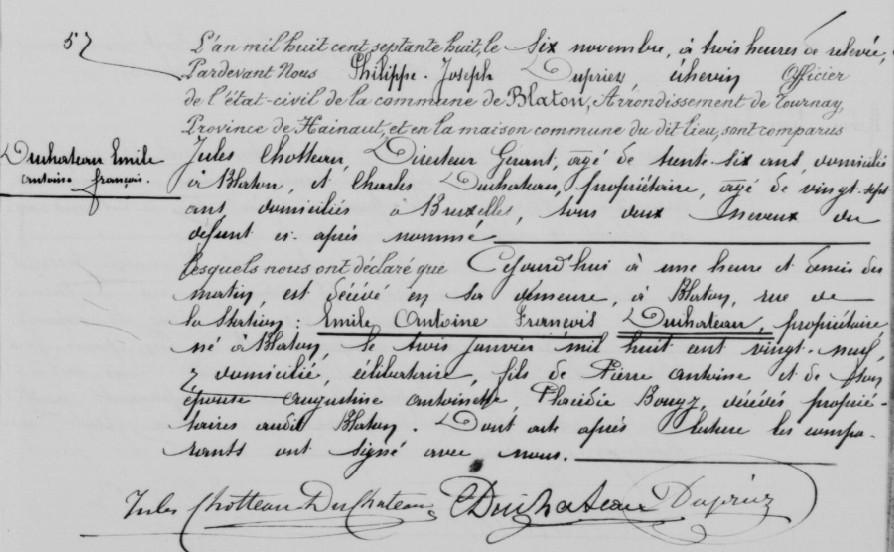 57
L'an mil huit cent septante huit, le six novembre, à trois heures de relevée,
Pardevant Nous Philippe-Joseph Dupriez échevin Officier
de l'état-civil de la commune de Blaton, Arrondissement de Tournay,
Province de Hainaut, et en la maison commune du dit lieu, sont comparus
Duchateau Emile
Antoine François.
Jules Chotteau, Directeur Gérant, âgé de trente-six ans, domicilié
à Blaton, et Charles Duchateau, propriétaire, âgé de vingt-sept
ans domiciliés à Bruxelles, tous deux neveux du
défunt ci-après nommé
Lesquels nous ont déclaré que Cejourd'hui à une heure et demie du
matin, est décédé en sa demeure, à Blaton, rue de
la Station : Emile Antoine François Duchateau, propriétaire
né à Blaton, le trois Janvier mil huit cent vingt-neuf,
y domicilié, célibataire, fils de Pierre Antoine et de son
épouse Augustine Antoinette Placidie decédés proprié-
taires audit Blaton. Dont acte après lecture les compa-
rants ont signé avec nous.
Jules Chotteau DuChateau CDuchateau Dupriez